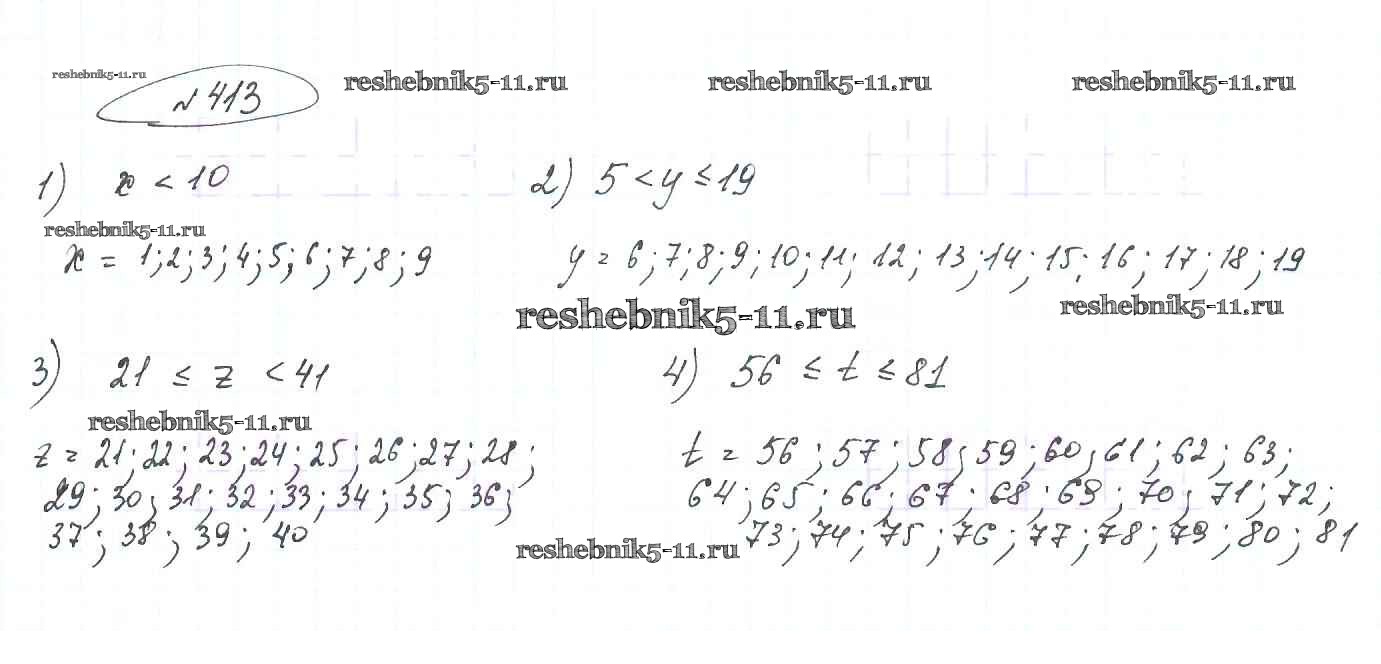 reshebnik5-11.ru
№ 413 reshebnik5-11.ru reshebnik5-11.ru reshebnik5-11.ru
1) x < 10 2) 5 < y ≤ 19
reshebnik5-11.ru
x = 1; 2; 3; 4; 5; 6; 7; 8; 9 y = 6; 7; 8; 9; 10; 11; 12; 13; 14; 15; 16; 17; 18; 19
reshebnik5-11.ru reshebnik5-11.ru
3) 21 ≤ z < 41 4) 56 ≤ t ≤ 81
reshebnik5-11.ru
z = 21; 22; 23; 24; 25; 26; 27; 28;
29; 30; 31; 32; 33; 34; 35; 36;
37; 38; 39; 40
t = 56; 57; 58; 59; 60; 61; 62; 63;
64; 65; 66; 67; 68; 69; 70; 71; 72;
reshebnik5-11.ru 73; 74; 75; 76; 77; 78; 79; 80; 81